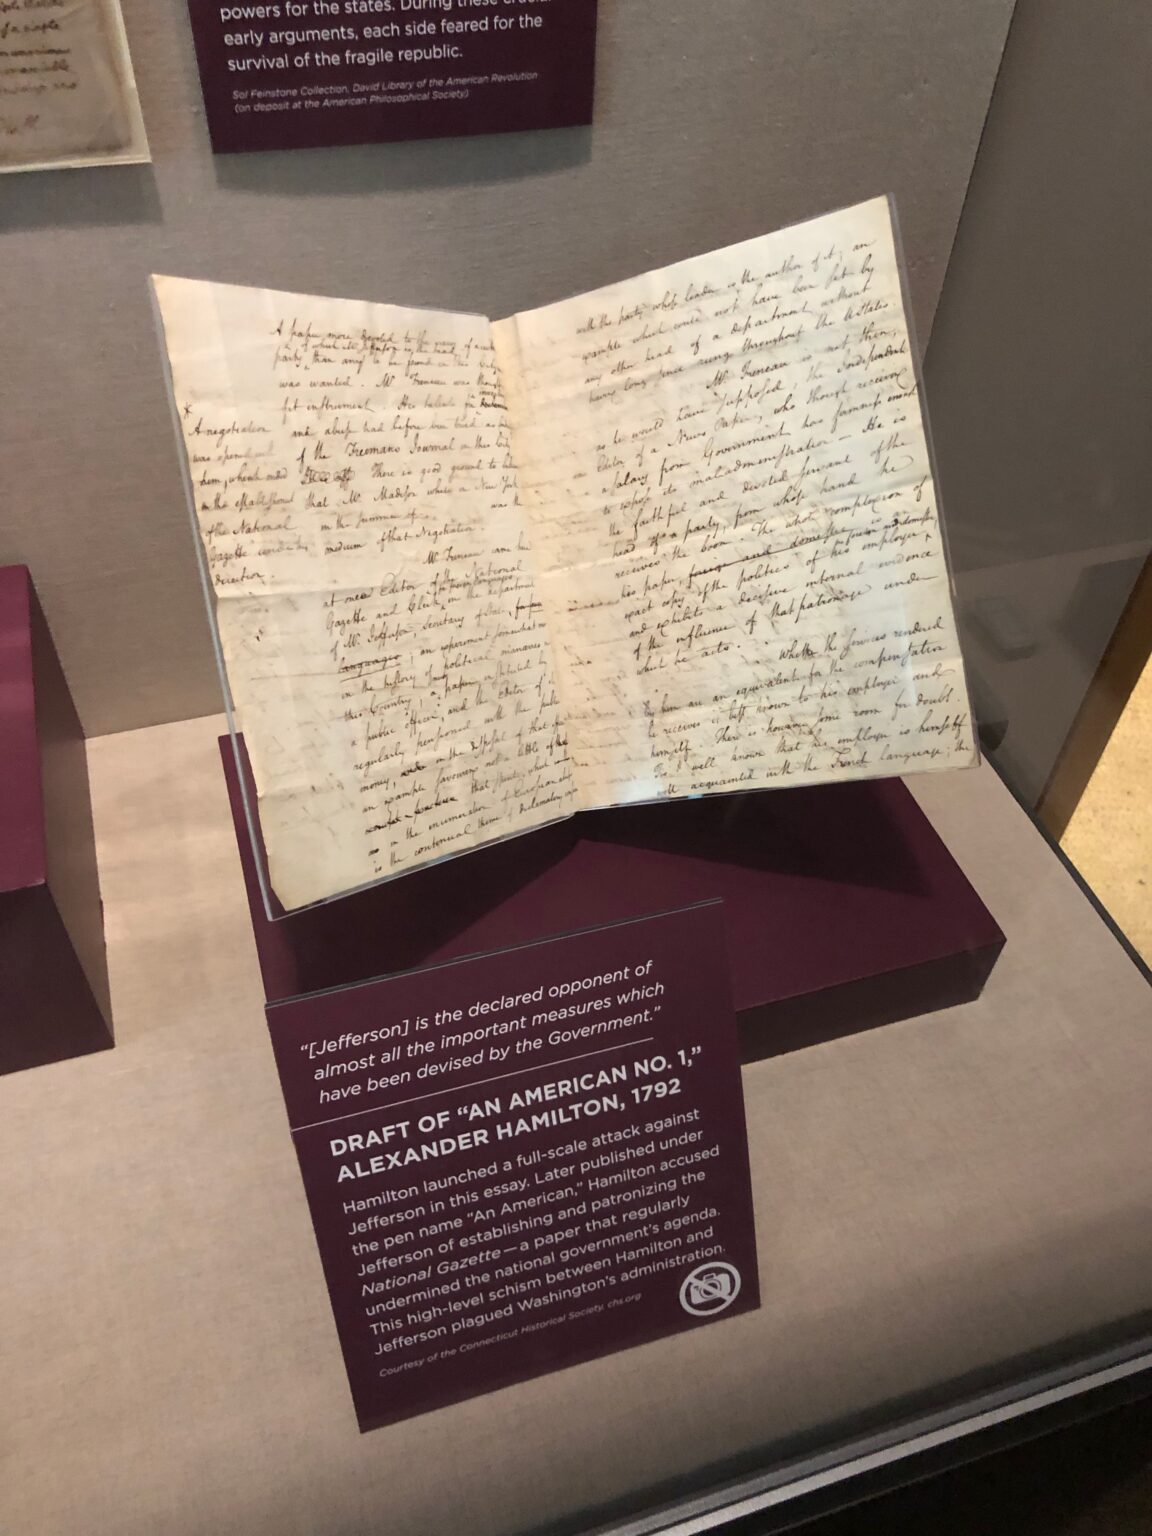 powers for the states. During these
early arguments, each side feared for the
survival of the fragile republic.
Sol Feinstone Collection, David Library of the American Revolution
(on deposit at the American Philosophical Society)
A paper more devoted to the views of a
of which Mr. is the head
party, than any to be found in this
was wanted. Mr Freneau was thought
fit instrument. His talents for
A negotiation and abuse had before been tried as
was opened of the Freemans Journal in this City
them, which ended There is good ground to
in the establishment that Mr. Madison while a New York
of the National in the summer of was the
Gazette under his medium of that Negotiation.
direction.
Mr Freneau came here
at once Editor of the National
Gazette and Clerk in the department
of Mr Jefferson, Secretary of State,
languages; an experiment somewhat
in the history of political manœuvres
this Country; a paper instituted by
a public officer, and the Editor of it
regularly pensioned with the public
money, in the disposal of that
an example savouring not a little of
that spirit, which
in the enumeration of European
is the continual theme of declamatory
with the party whose leader is the author of it; an
example which could not have been set by
any other head of a department without
having long since rung throughout the States.
Mr. Freneau is not then,
as he would have supposed, the Independent
Editor of a News Paper, who though receiving
a salary from Government has firmness enough
to expose its maladministration — He is
the faithful and devoted servant of the
head of a party, from whose hand he
receives the boon. The whole complexion of
his paper, foreign and domestic is an
exact copy of the politics of his employer
and exhibits a decisive internal evidence
of the influence of that patronage under
which he acts.
Whether the services rendered
by him are an equivalent for the compensation
he receives is best known to his employer and
himself. There is however some room for doubt.
Tis well known that his employer is himself
well acquainted with the French language; the
“[Jefferson] is the declared opponent of
almost all the important measures which
have been devised by the Government.”
DRAFT OF “AN AMERICAN NO. 1,”
ALEXANDER HAMILTON, 1792
Hamilton launched a full-scale attack against
Jefferson in this essay. Later published under
the pen name “An American,” Hamilton accused
Jefferson of establishing and patronizing the
National Gazette—a paper that regularly
undermined the national government’s agenda.
This high-level schism between Hamilton and
Jefferson plagued Washington’s administration.
Courtesy of the Connecticut Historical Society, chs.org